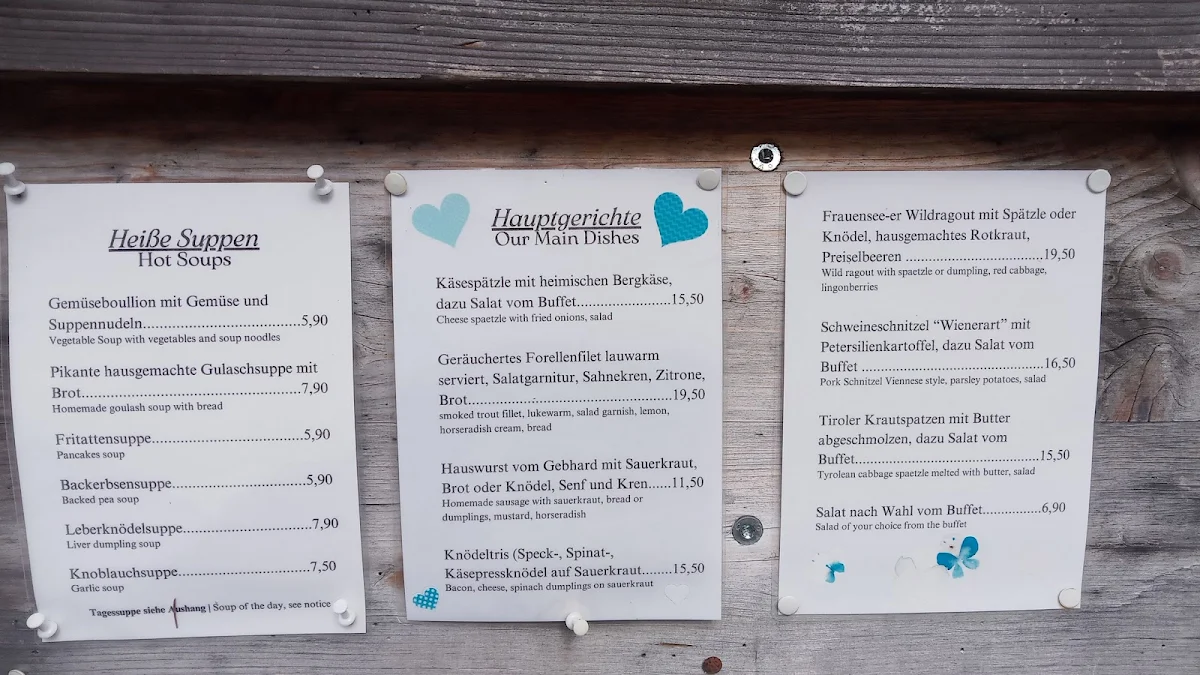 Heiße Suppen
Hot Soups
Gemüseboullion mit Gemüse und
Suppennudeln..................................5,90
Vegetable Soup with vegetables and soup noodles
Pikante hausgemachte Gulaschsuppe mit
Brot................................................7,90
Homemade goulash soup with bread
Fritattensuppe.................................5,90
Pancakes soup
Backerbsensuppe.............................5,90
Backed pea soup
Leberknödelsuppe............................7,90
Liver dumpling soup
Knoblauchsuppe............................7,50
Garlic soup
Tagessuppe siehe Aushang | Soup of the day, see notice
Hauptgerichte
Our Main Dishes
Käsespätzle mit heimischen Bergkäse,
dazu Salat vom Buffet.....................15,50
Cheese spaetzle with fried onions, salad
Geräuchertes Forellenfilet lauwarm
serviert, Salatgarnitur, Sahnekren, Zitrone,
Brot.............................................19,50
smoked trout fillet, lukewarm, salad garnish, lemon,
horseradish cream, bread
Hauswurst vom Gebhard mit Sauerkraut,
Brot oder Knödel, Senf und Kren......11,50
Homemade sausage with sauerkraut, bread or
dumplings, mustard, horseradish
Knödeltris (Speck-, Spinat-,
Käsepressknödel auf Sauerkraut.......15,50
Bacon, cheese, spinach dumplings on sauerkraut
Frauensee-er Wildragout mit Spätzle oder
Knödel, hausgemachtes Rotkraut,
Preiselbeeren ...............................19,50
Wild ragout with spaetzle or dumpling, red cabbage,
lingonberries
Schweineschnitzel “Wienerart” mit
Petersilienkartoffel, dazu Salat vom
Buffet ..........................................16,50
Pork Schnitzel Viennese style, parsley potatoes, salad
Tiroler Krautspatzen mit Butter
abgeschmolzen, dazu Salat vom
Buffet.........................................15,50
Tyrolean cabbage spaetzle melted with butter, salad
Salat nach Wahl vom Buffet.............6,90
Salad of your choice from the buffet